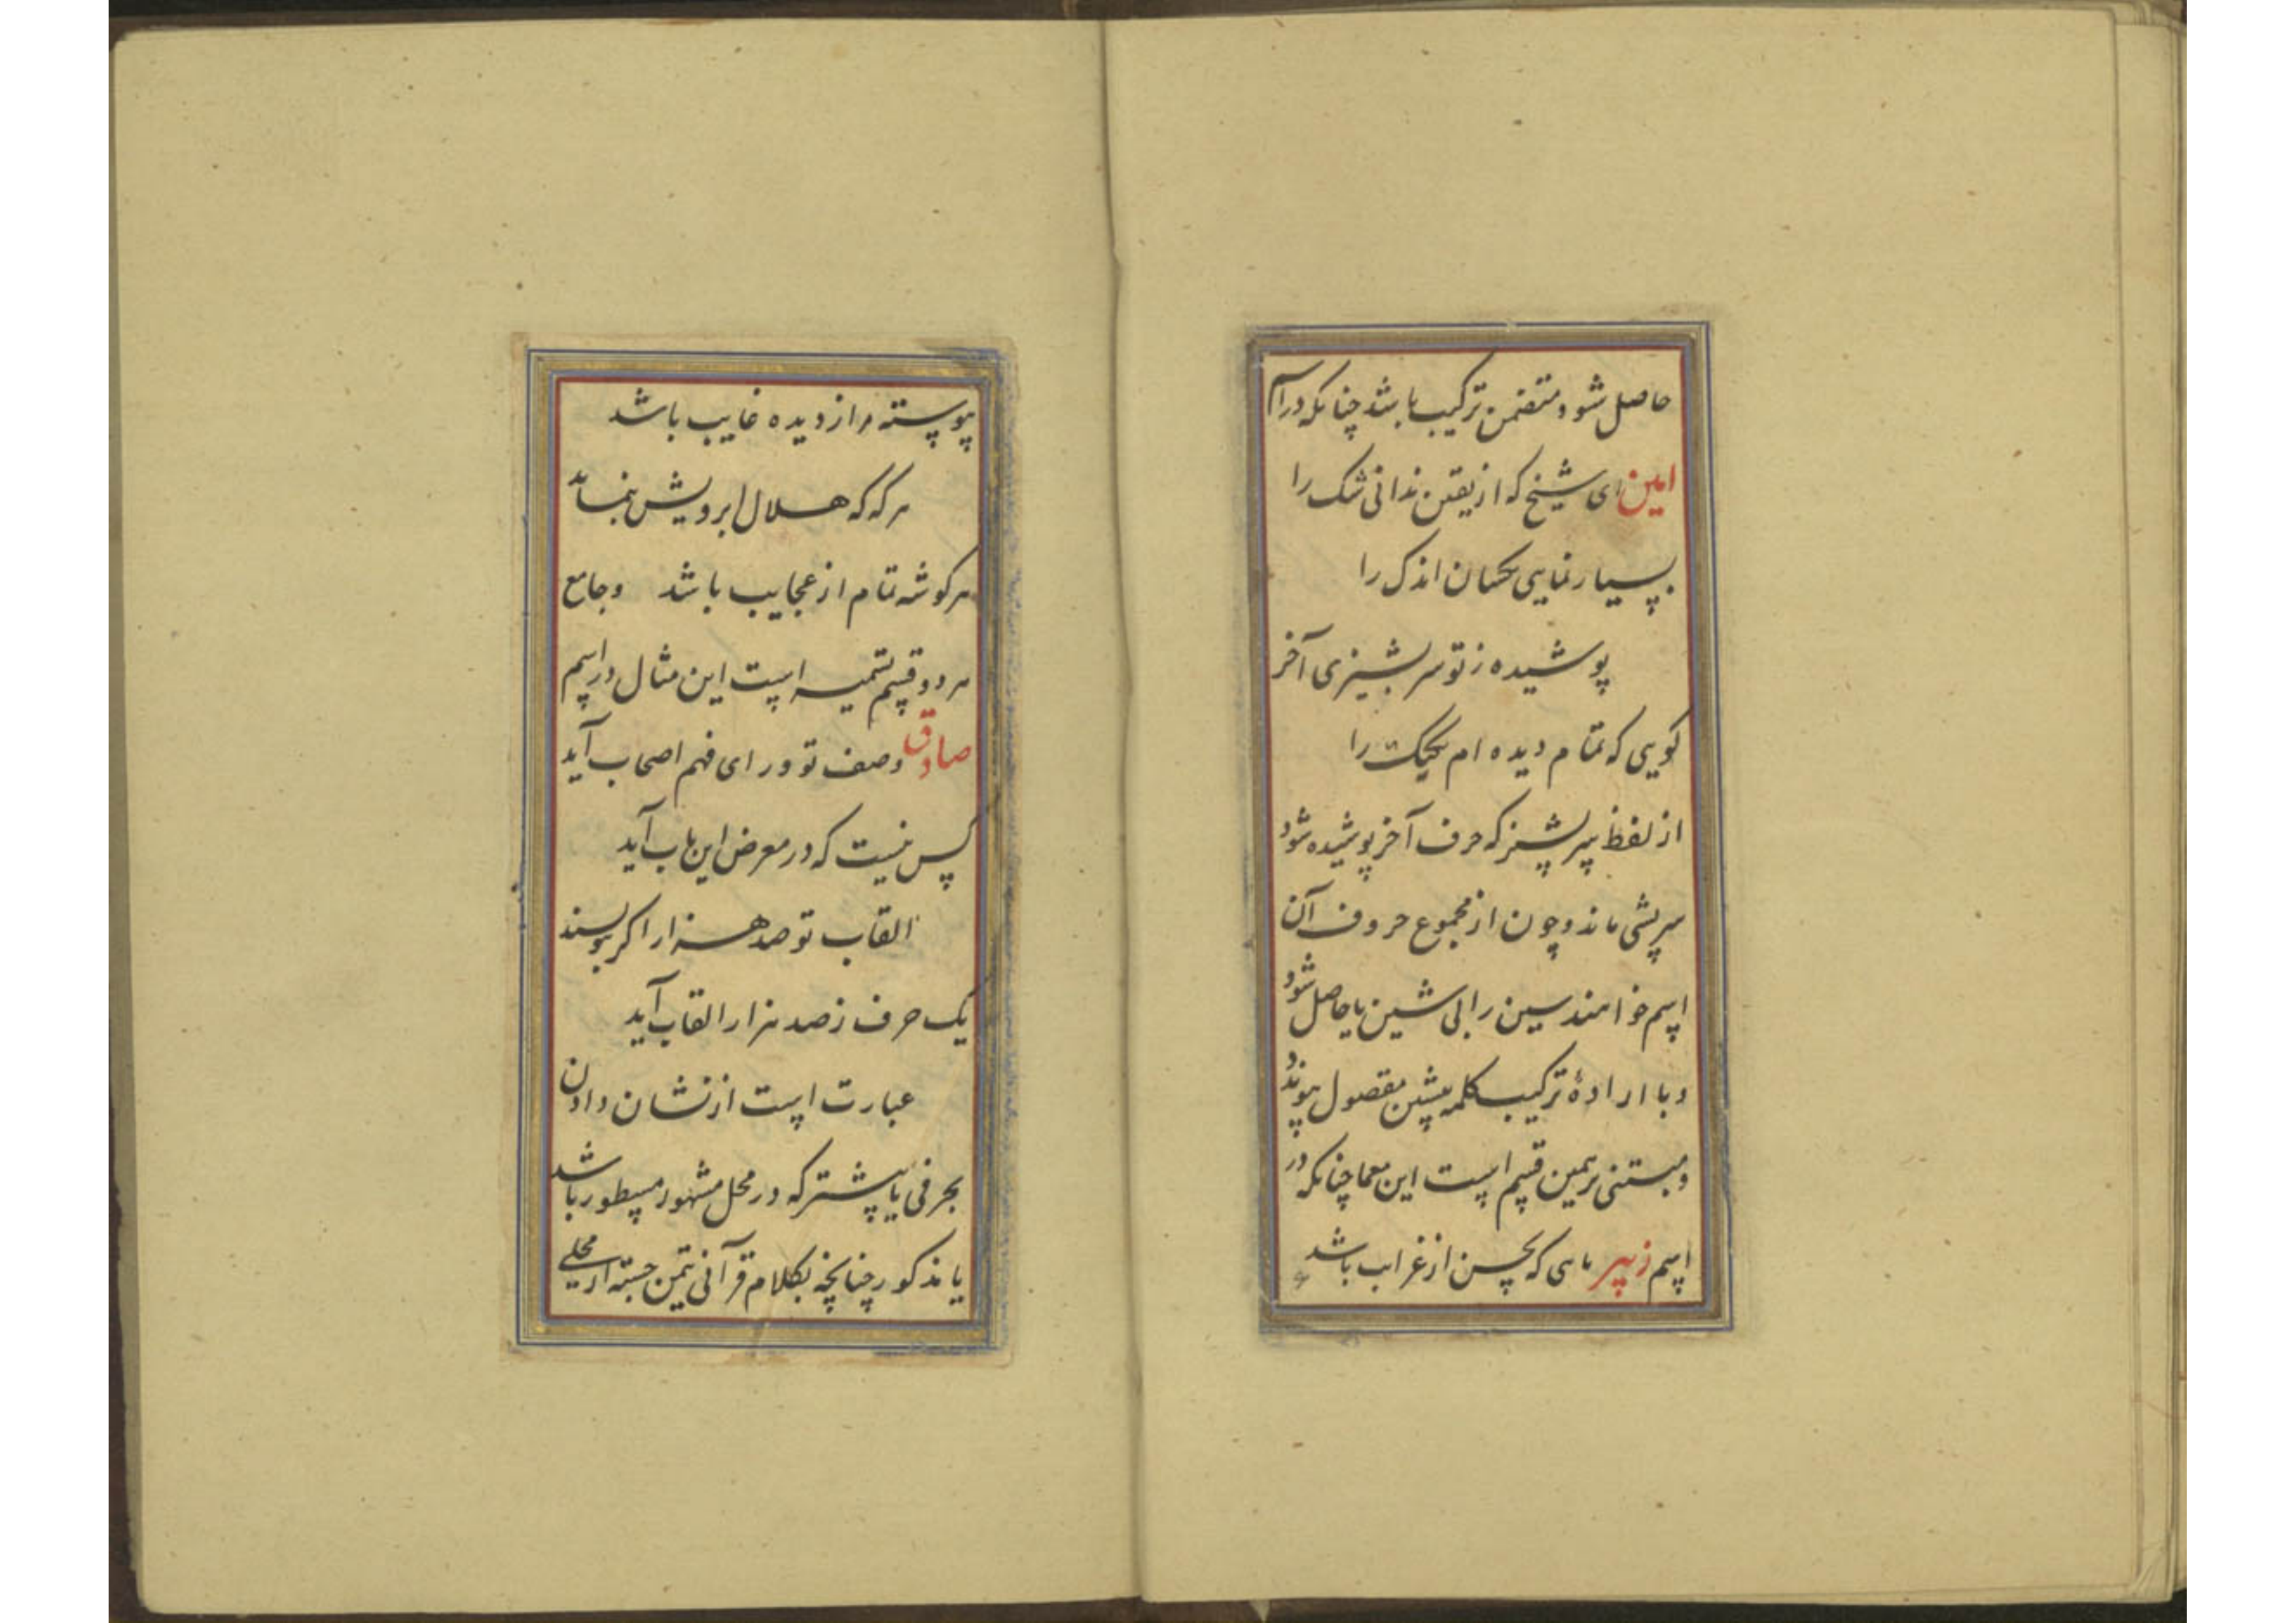 حاصل شود و متضمن ترکیب باشد چنانکه در اسم
امین ای شیخ که از یقین ندانی شک را
بسیار نمایی اندک را
پوشیده ز تو سر بشیزی آخر
گویی که تمام دیده ام یکیک را
از لفظ که حرف آخر پوشیده شود
ماند و چون از مجموع حروف آن
اسم خواهند سین را شین یا حاصل شود
و با ارادهٔ ترکیب کلمه پیشین بمقصول پیوندد
و مبتنی بر همین قسم است این معما چنانکه در
اسم زبیر ماهی که بحسن از غرایب باشد
پیوسته مرا ز دیده غایب باشد
هر گه که هلال ابرویش بنماید
هر گوشه تمام از عجایب باشد و جامع
هر دو قسم تسمیه است این مثال در اسم
صادق وصف تو ورای فهم اصحاب آید
کس نیست که در معرض این باب آید
القاب تو صد هزار اگر بنویسند
یک حرف ز صد هزار القاب آید
عبارت است از نشان دادن
بحرفی یا بیشتر که در محل مشهور مسطور باشد
یا مذکور چنانچه بکلام قرآنی تیمن جسته از محلی